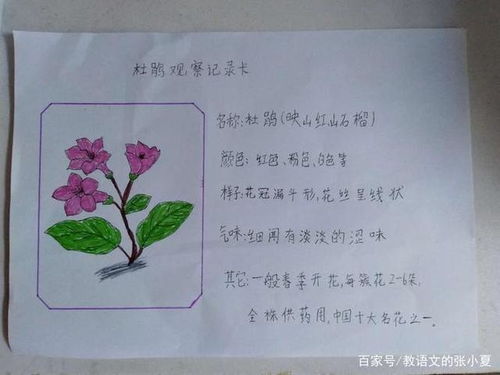 杜鹃观察记录卡
名称:杜鹃(映山红山石榴)
颜色:红色、粉色、白色等
样子:花冠漏斗形,花丝呈线状
气味:细闻有淡淡的涩味
其它:一般春季开花,每簇花2-6朵,
全株供药用,中国十大名花之一。
百家号/教语文的张小夏